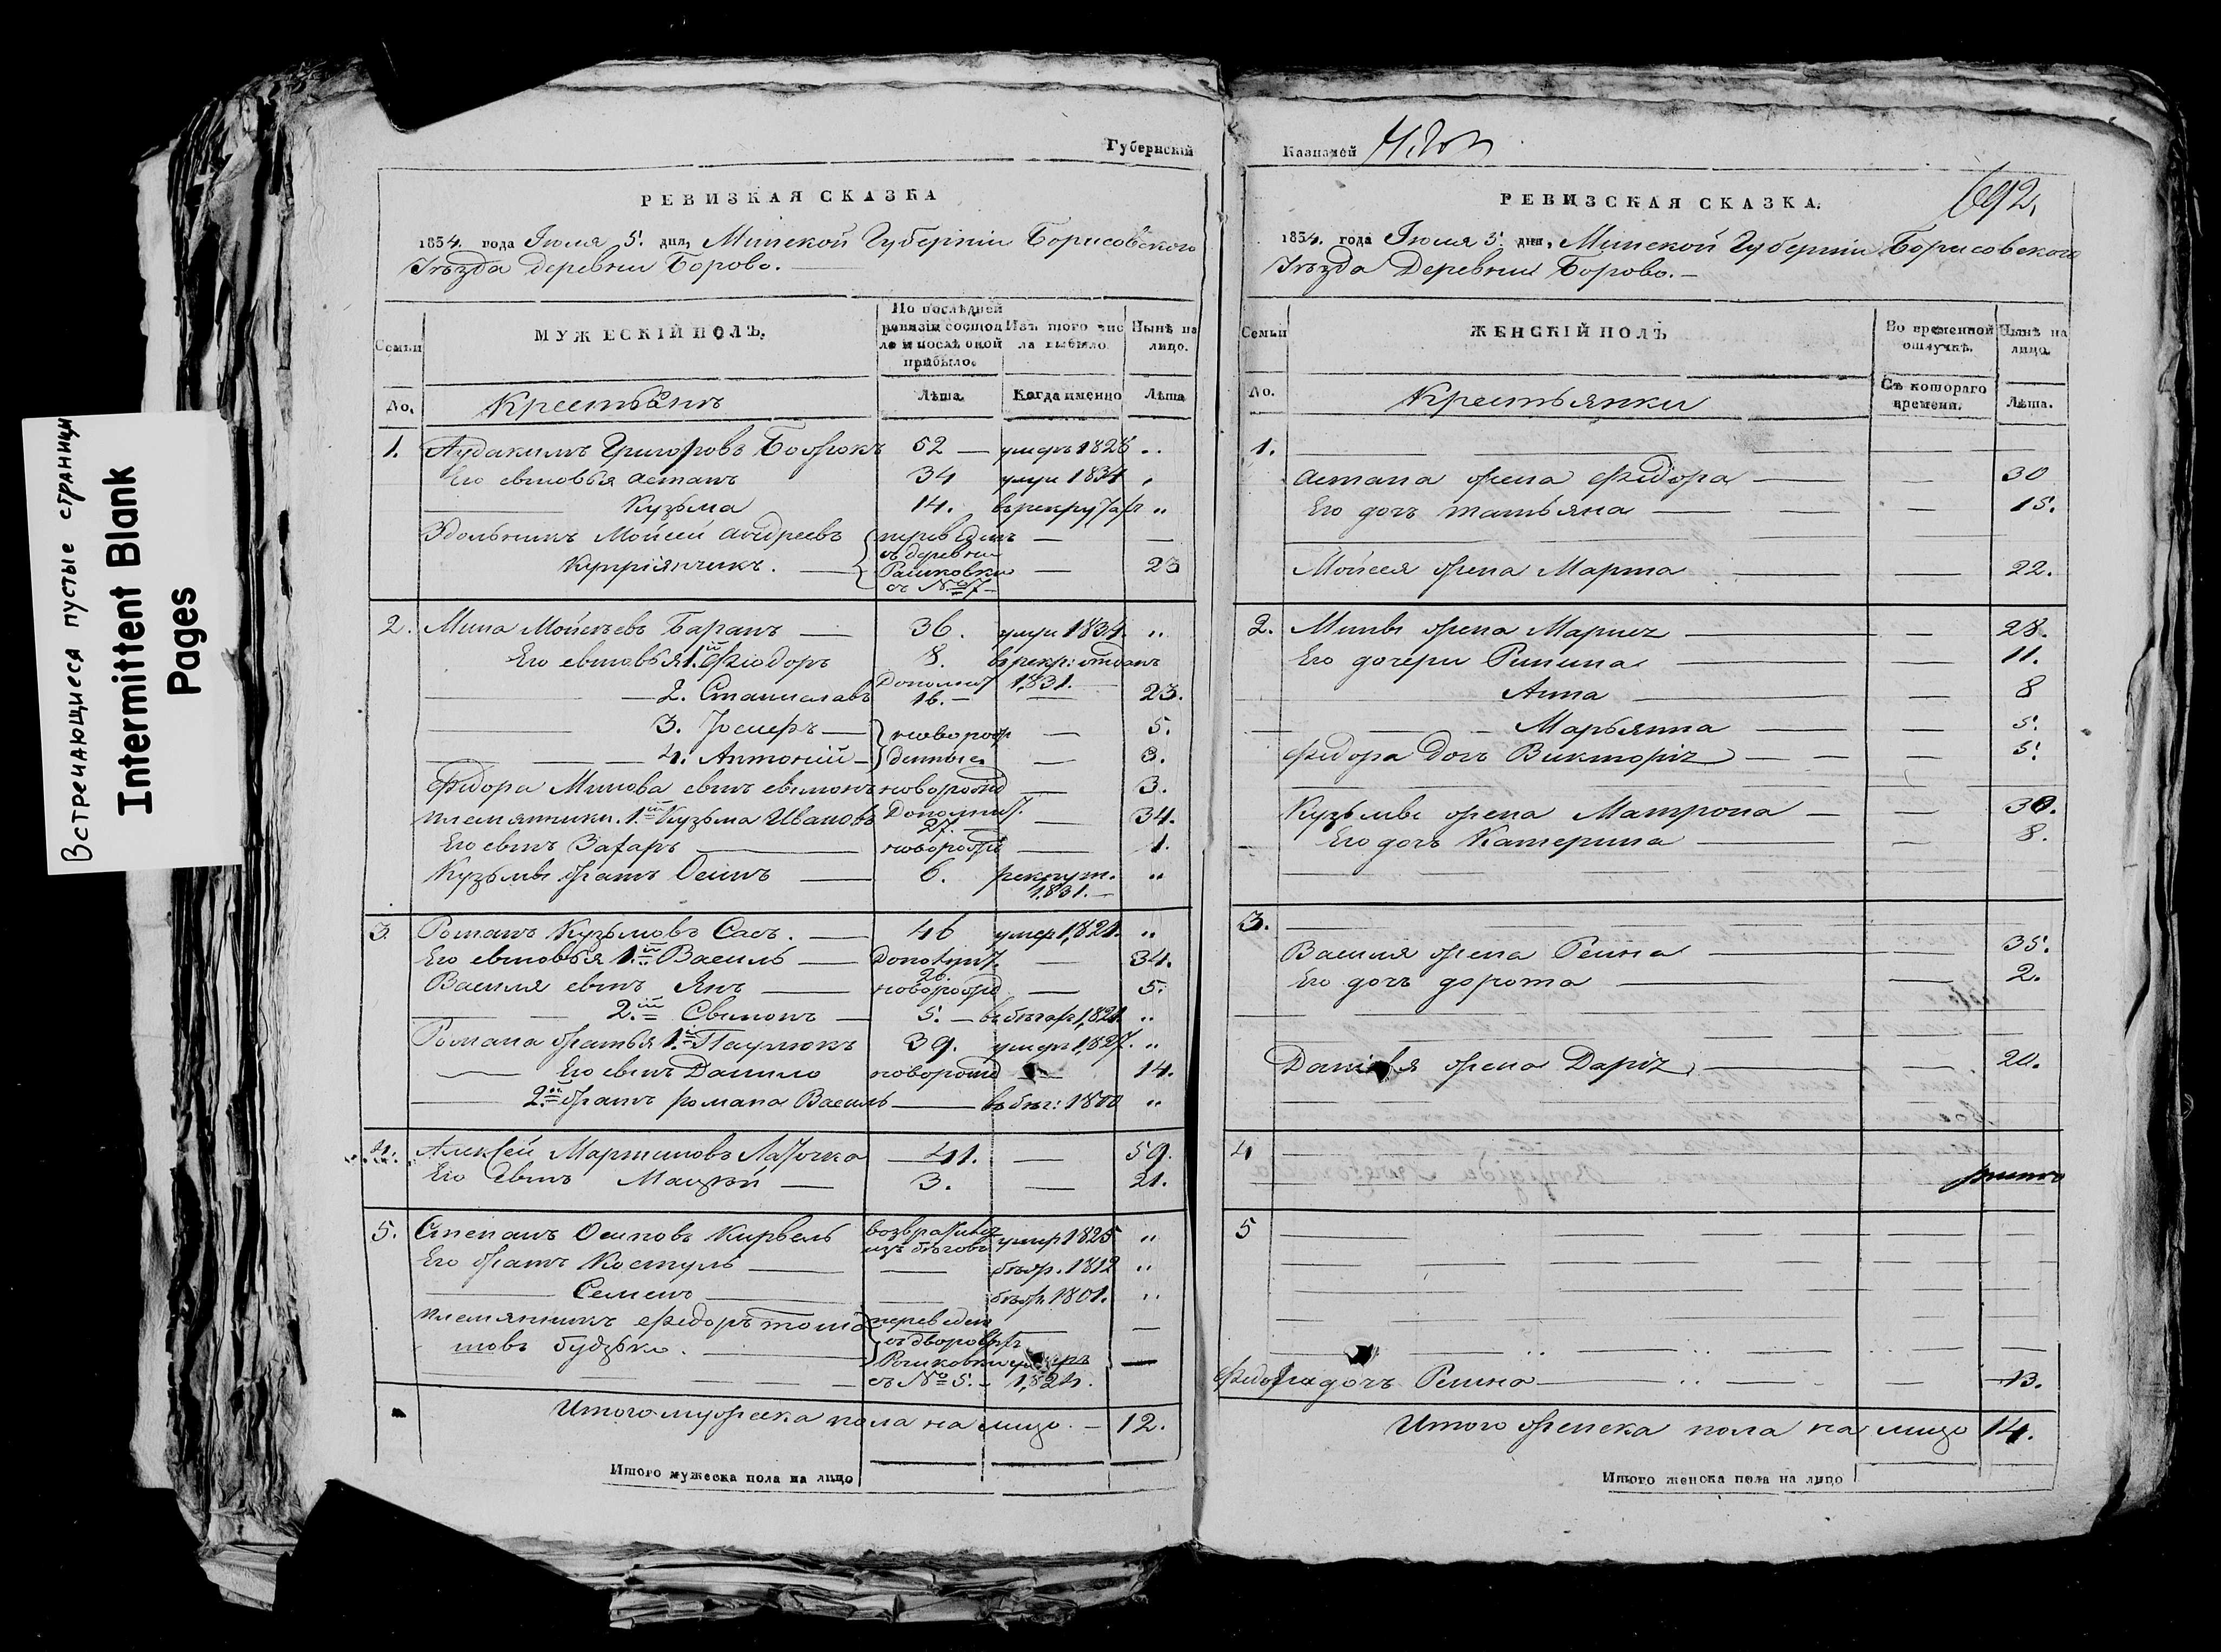 Встречающиеся пустые страницы
Intermittent Blank
Pages
Губернскій
РЕВИЗКАЯ СКАЗКА
1834. года Іюля 5. дня, Минской Губерніи Борисовского
Уѣзда Деревни Борово.
Семьи
МУЖЕСКІЙ ПОЛЪ.
По послѣдней ревизіи состояло и послѣ оной прибыло.
Изъ того числа выбыло
Нынѣ на лицо.
No.
Крестьянъ
Лѣта
Когда именно
Лѣта
1. Григоровъ 52 1828 "
Его сыновья Астапъ 34 1834
Кузьма 14. "
Мойсей Андреевъ переведенъ
Купріянчикъ. съ деревни 23
Рашковки
съ № 7
2. Мина Мойсѣевъ Баранъ 36. 1834. "
Его сыновья 1й Фіодоръ 8. въ рекр: отданъ
1831.
2. Станиславъ 16. 23.
3. Іосифъ новорож 5.
4. Антоній денные 3.
Фидора Минова сынъ новорожд 3.
племянники. 1й Кузьма Ивановъ 27. 34.
Его сынъ Захаръ новорожд 1.
Кузьмы братъ Осипъ 6. рекрут. "
1831.
3. Романъ Кузьмовъ Сасъ. 46 умер 1821. "
Его сыновья 1й Василь 20. 34.
Василя сынъ Янъ новорожд 5.
2й 5. 1821 "
Романа братья 1й Паулюкъ 39. 1827. "
Его сынъ Данило новорожд 14.
2й братъ романа Василь "
4. Алексѣй Мартиновъ 41. 59.
Его сынъ Мацѣй 3. 21.
5. Степанъ Осиповъ Кирвель умир 1825 "
изъ бѣговъ
Его братъ Костусь 1812 "
Семенъ 1801. "
племянникъ Федоръ переведен
Рашковки
съ № 5. 1824.
Итого мужеска пола на лицо 12.
Итого мужеска пола на лицо
Казначей
692.
РЕВИЗСКАЯ СКАЗКА.
1834. года Іюля 5. дня, Минской Губерніи Борисовского
Уѣзда Деревни Борово.
Семьи
ЖЕНСКІЙ ПОЛЪ
Во временной отлучкѣ.
Нынѣ на лицо.
No.
Крестьянки
Съ котораго времени.
Лѣта.
1.
Астапа жена Фидора 30
Его дочь татьяна 15.
Мойсея жена Марта 22.
2. Мины жена 28.
Его дочери 11.
Анна 8
Марьянна 5.
Фидора дочь Викторія 5.
Кузьмы жена Матрона 30.
Его дочь Катерина 8.
3.
Василя жена 35.
Его дочь дорота 2.
жена Дарія 20.
4
5
Федора дочь 13.
Итого женска пола на лицо 14.
Итого женска пола на лицо